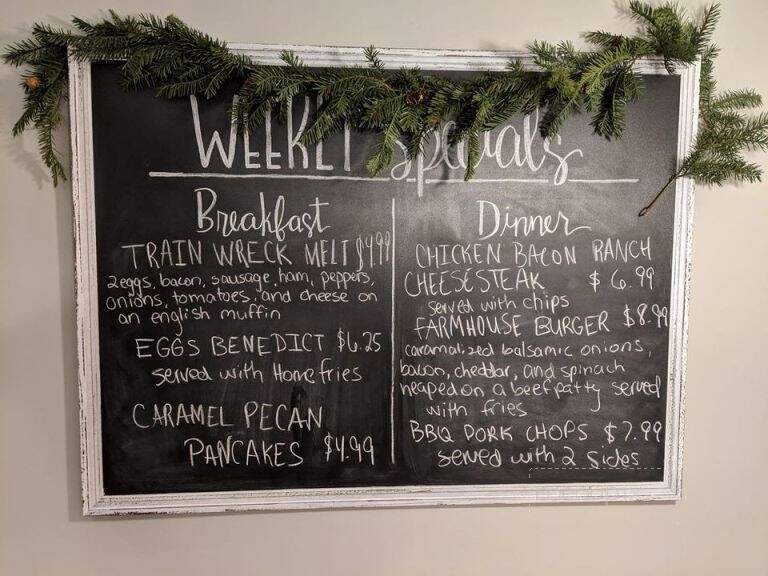 WEEKLY Specials
Breakfast
TRAIN WRECK MELT $4.99
2 eggs, bacon, sausage, ham, peppers,
onions, tomatoes, and cheese on
an english muffin
EGGS BENEDICT $6.25
served with Home fries
CARAMEL PECAN
PANCAKES $4.99
Dinner
CHICKEN BACON RANCH
CHEESESTEAK $6.99
served with chips
FARMHOUSE BURGER $8.99
caramalized balsamic onions,
bacon, cheddar, and spinach
heaped on a beef patty served
with fries
BBQ PORK CHOPS $7.99
served with 2 sides